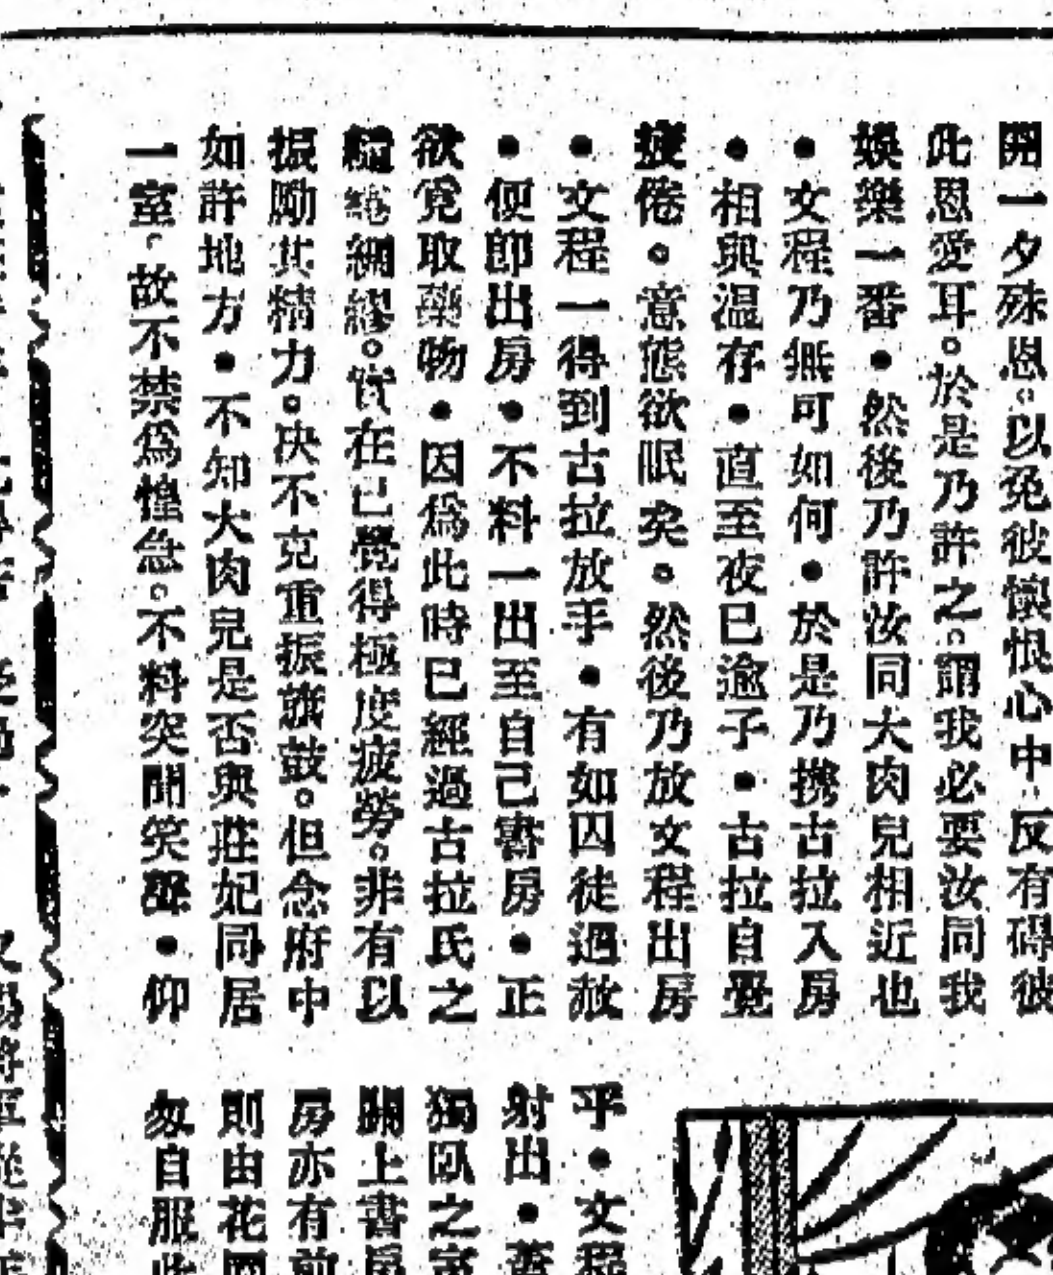 開一夕殊恩。以免彼懷恨心中。反有碍彼
此恩愛耳。於是乃許之。謂我必要汝同我
娛樂一番●然後乃許汝同大肉兒相近也
●文程乃無可如何●於是乃携古拉入房
●相與温存●直至夜已逾子●古拉自覺
疲倦。意態欲眠矣。然後乃放文程出房
●文程一得到古拉放手●有如囚徒過赦
●便即出房●不料一出至自己書房●正
欲覓取藥物●因爲此時已經過古拉氏之
綢繆。實在已覺得極度疲勞。非有以
振勵其精力。决不克重振旗鼓。但念府中
如許地方●不知大肉兒是否與莊妃同居
一室。故不禁爲惶急。不料突聞笑聲●仰
乎●文程
射出●
獨臥之室
開上書房
房亦有前
則由花園
匆自服此